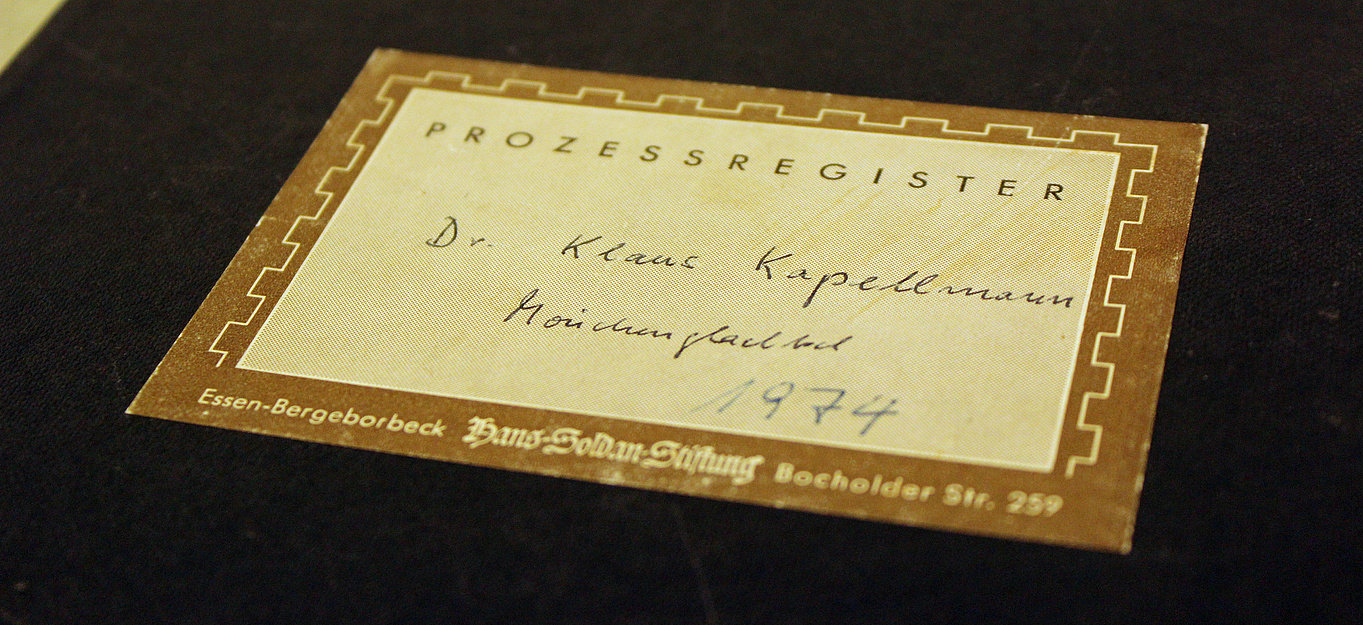 PROZESSREGISTER
Dr. Klaus Kapellmann
Mönchengladbach
1974
Essen-Bergeborbeck Hans-Soldan-Stiftung Bocholder Str. 259